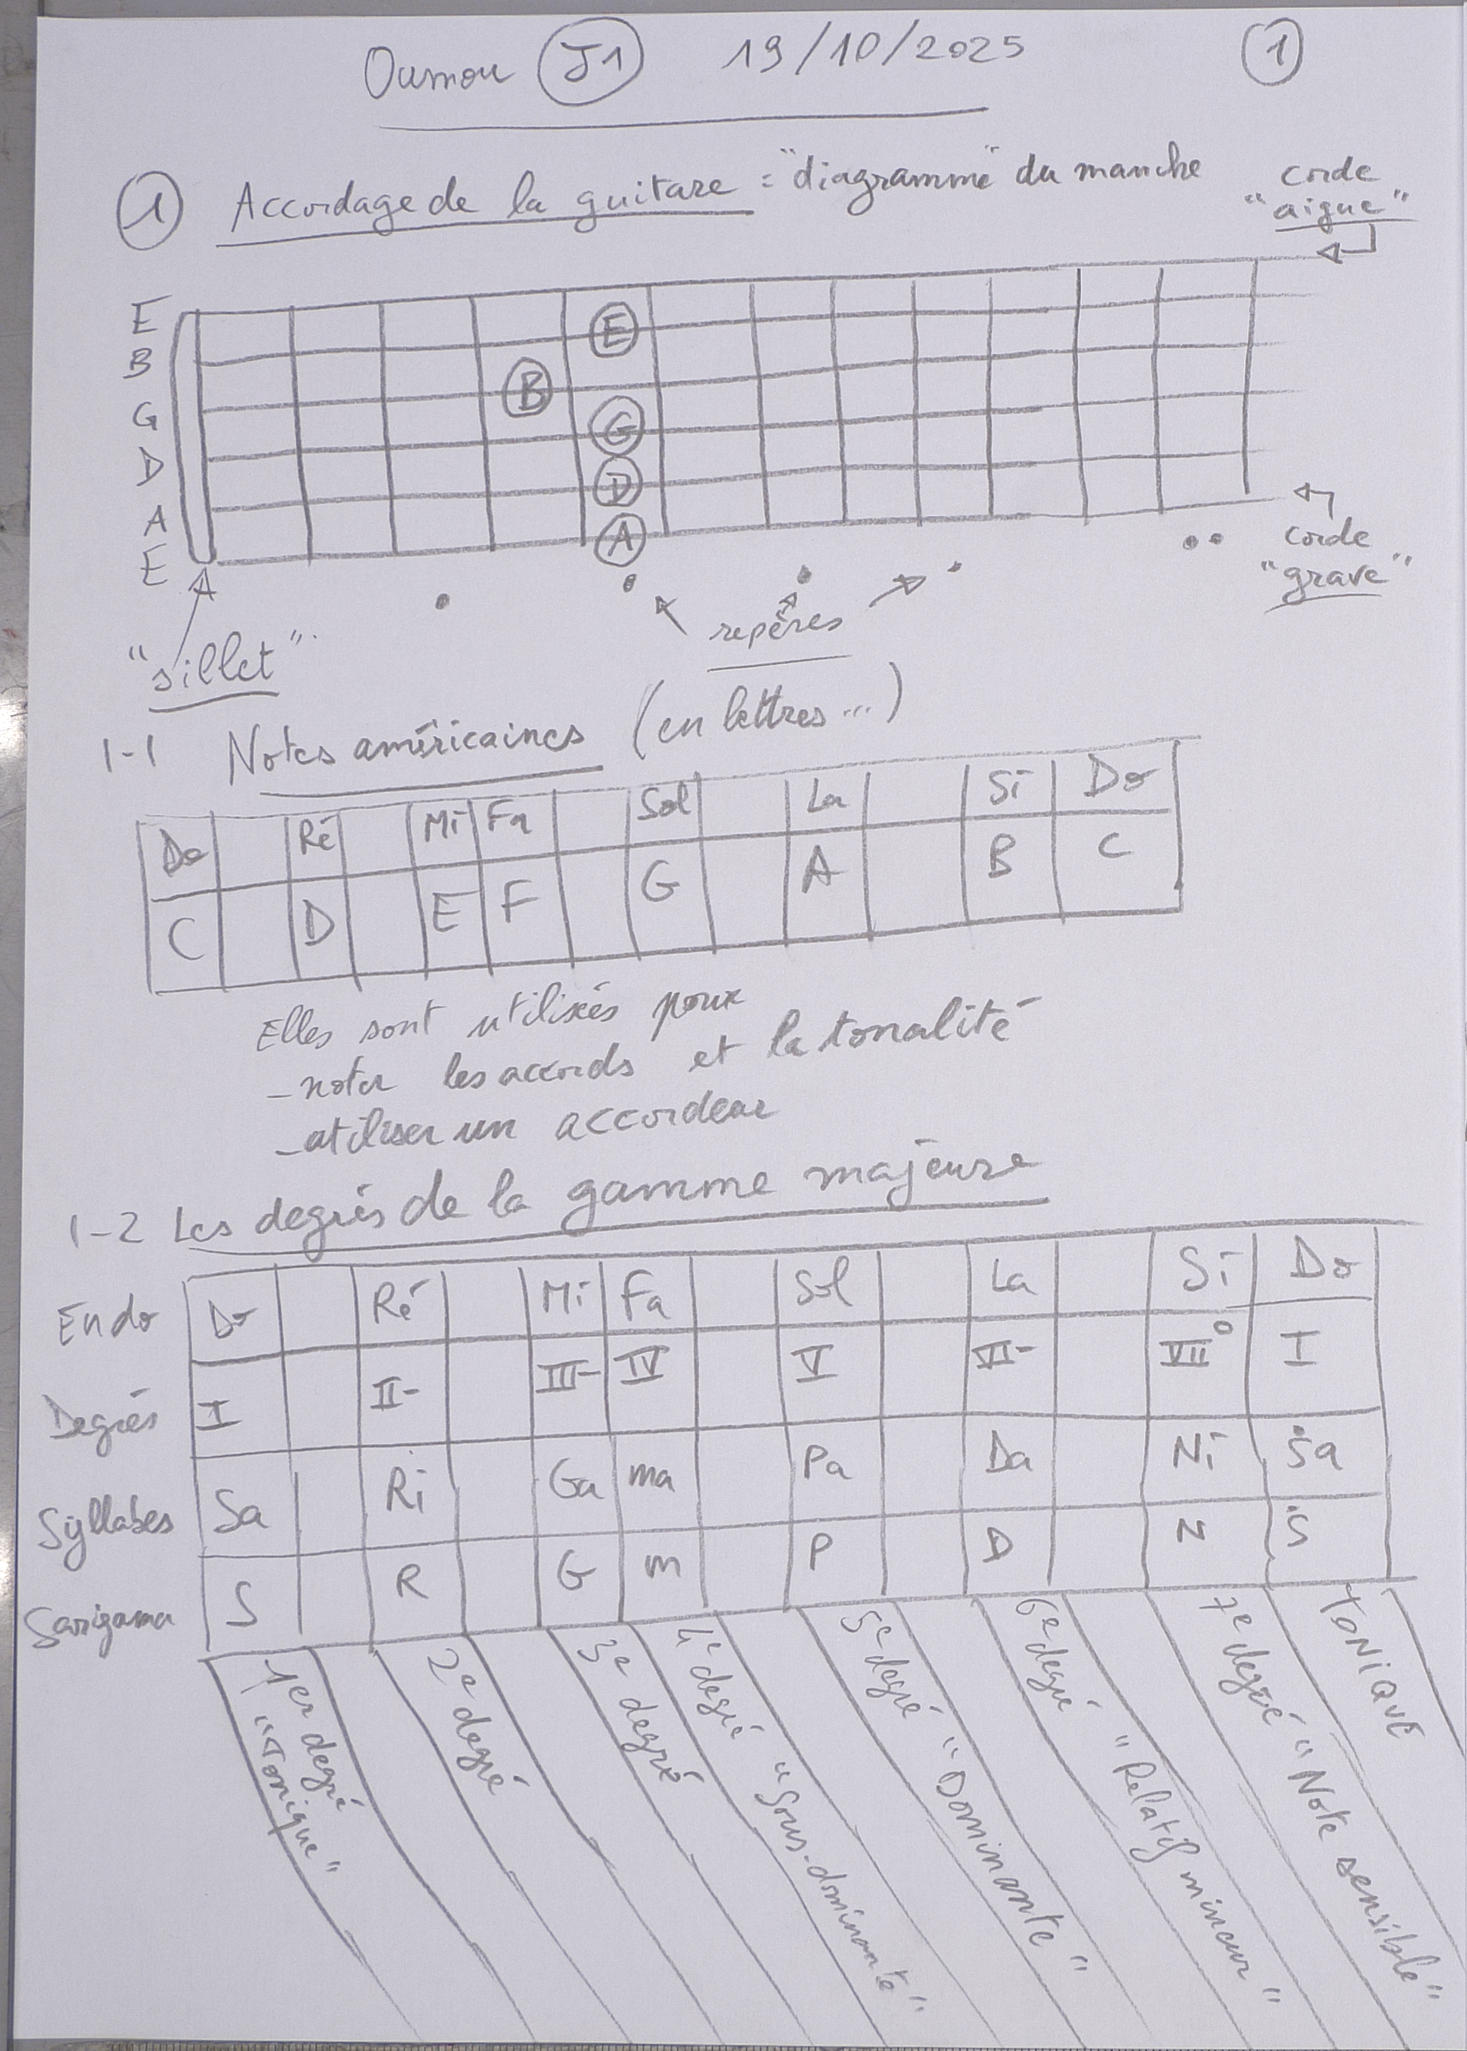 Oumou J1 19/10/2025 1
1 Accordage de la guitare : "diagramme" du manche
corde
"aigue"
E
B
G
D
A
E
E
B
G
D
A
corde
"grave"
repères
"sillet"
1-1 Notes américaines (en lettres...)
Do Ré Mi Fa Sol La Si Do
C D E F G A B C
Elles sont utilisés pour
- noter les accords et la tonalité
- utiliser un accordeur
1-2 Les degrés de la gamme majeure
En do Do Ré Mi Fa Sol La Si Do
Degrés I II- III- IV V VI- VII° I
Syllabes Sa Ri Ga ma Pa Da Ni Ṡa
Sarigama S R G m P D N Ṡ
1er degré "Tonique"
2e degré
3e degré
4e degré "Sous-dominante"
5e degré "Dominante"
6e degré "Relatif mineur"
7e degré "Note sensible"
TONIQUE